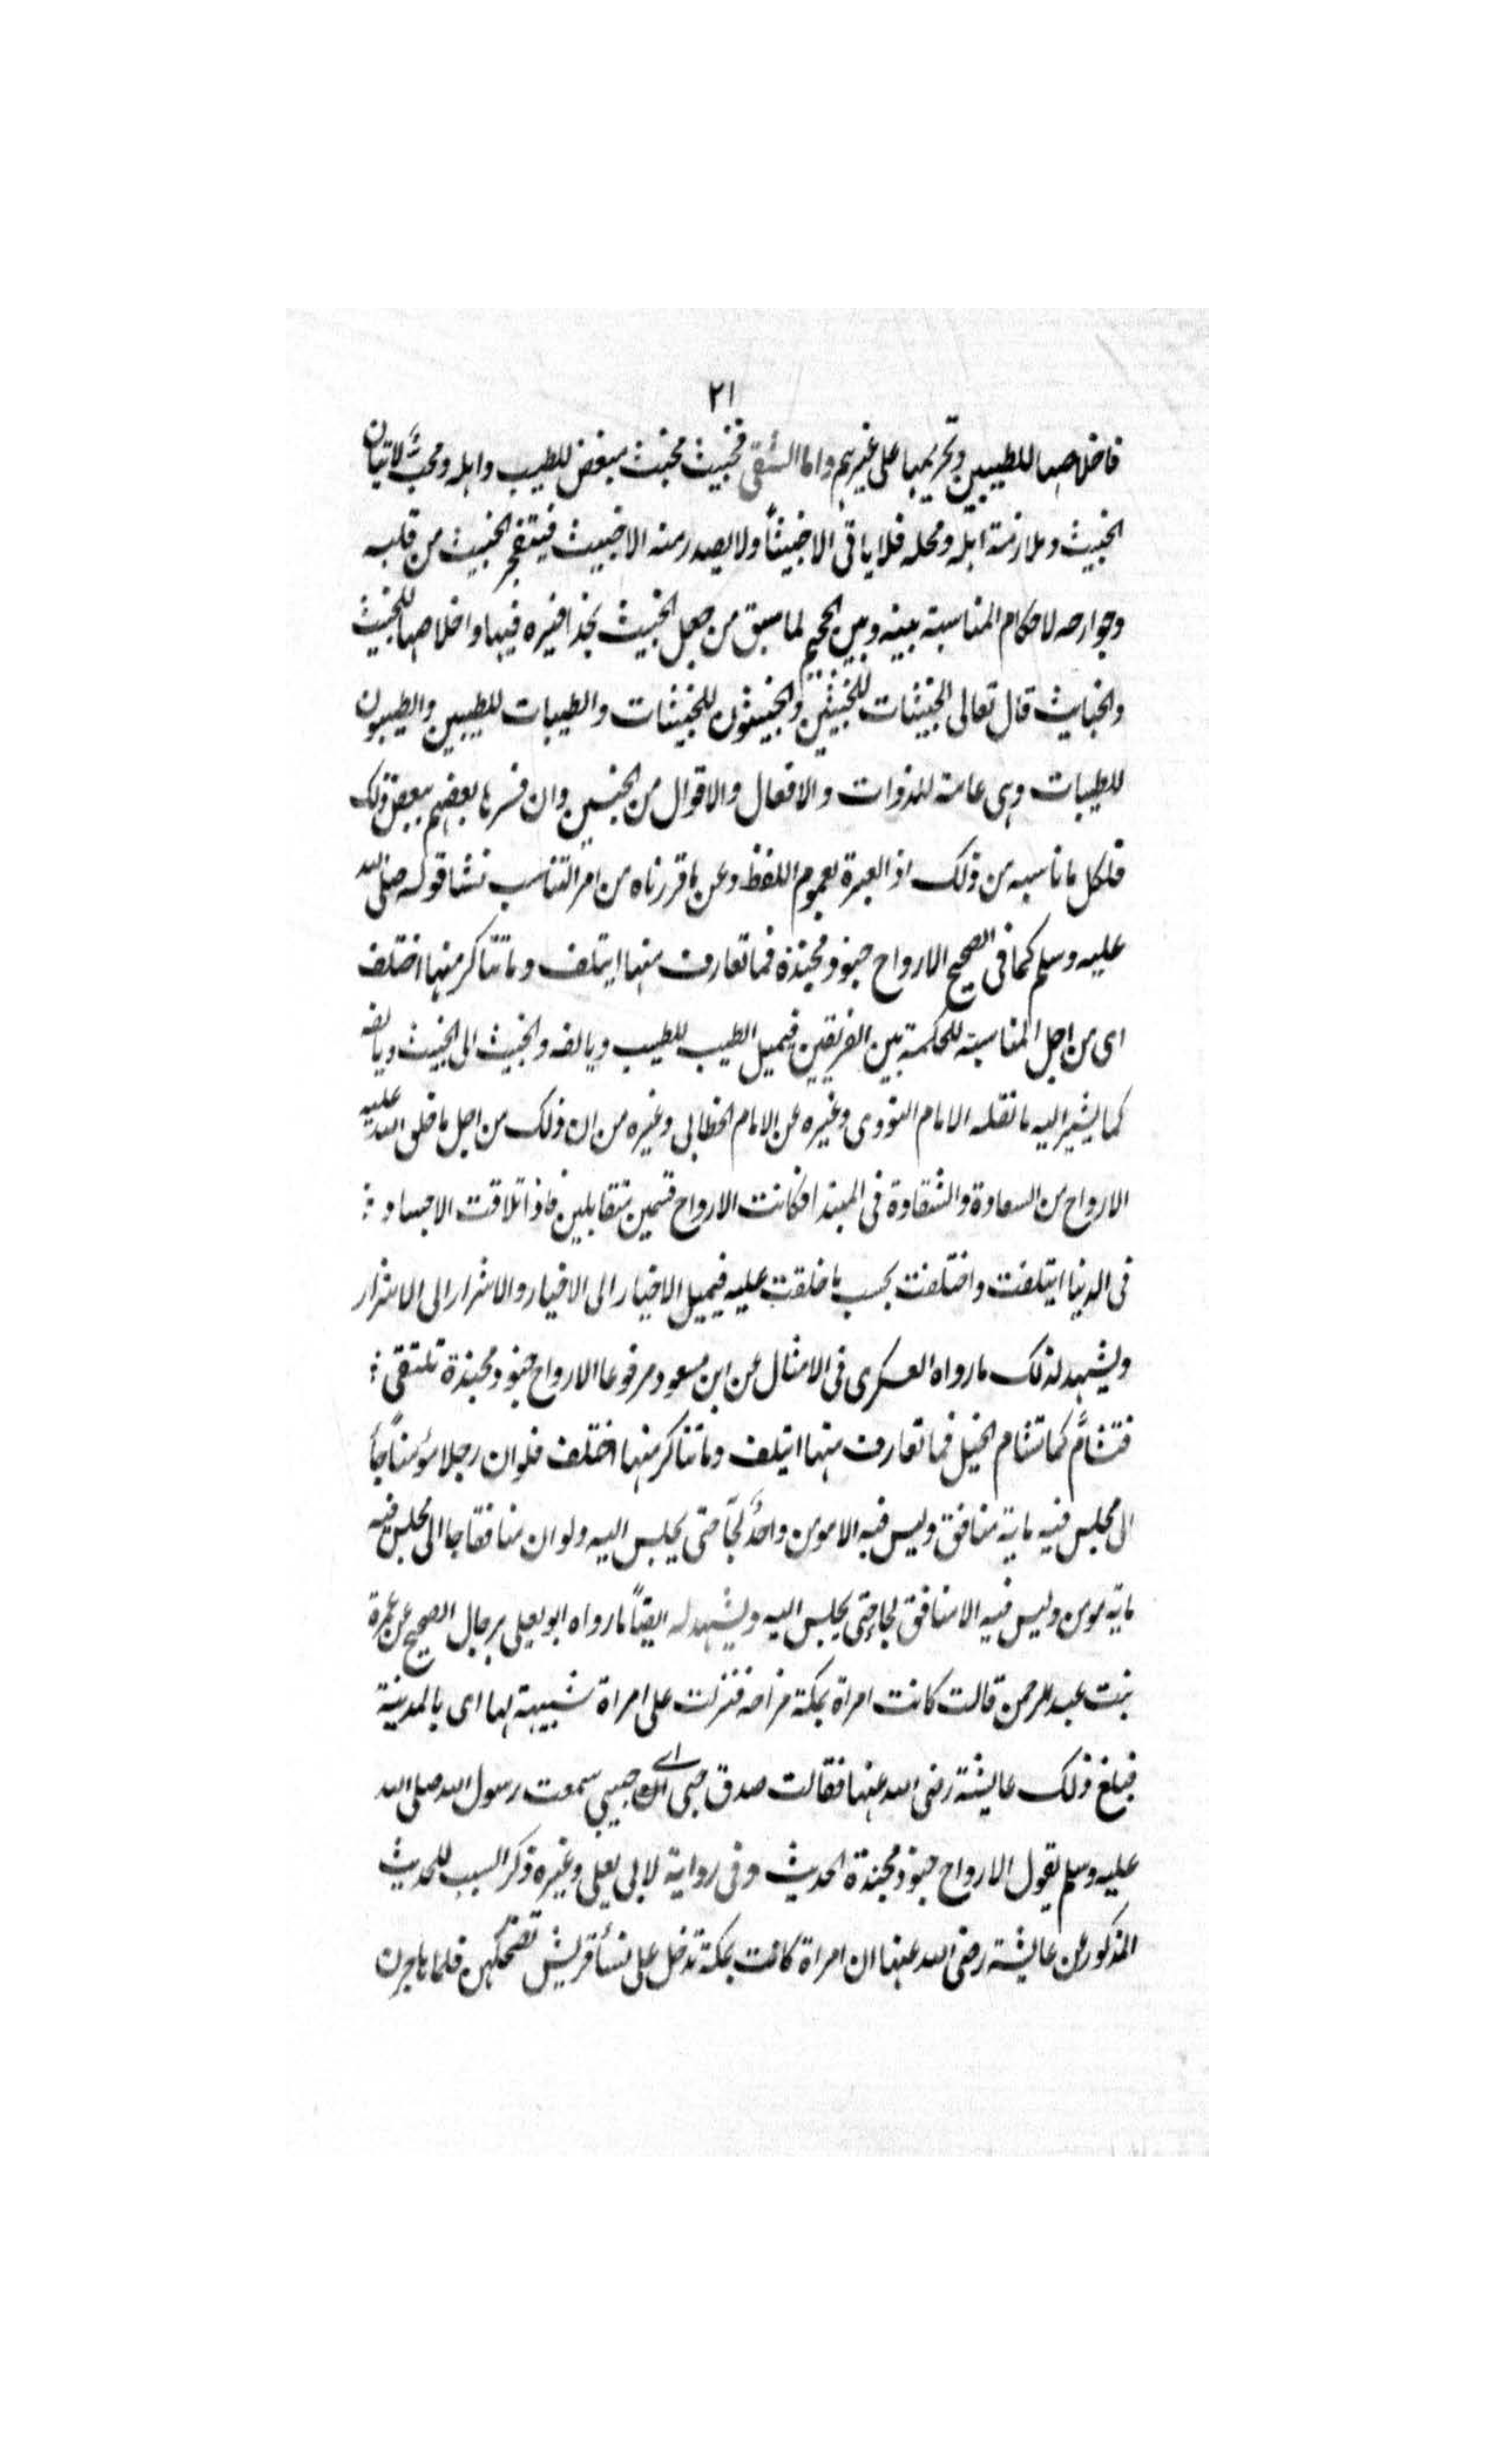 ٢١
فاخلاصها للطيبين وتحريمها على غيرهم واما الشقى فخبيث مخبث مبغض للطيب واهله ومحبٌّ لاتيان
الخبيث وملازمة اهله ومحله فلا ياتى الا خبيثاً ولا يصدر منه الا خبيث فيتفجر الخبيث من قلبه
وجوارحه لاحكام المناسبة بينه وبين الجحيم لما سبق من جعل الخبيث بحذافيره فيها واخلاصها للخبيث
والخبايث قال تعالى الخبيثات للخبيثين والخبيثون للخبيثات والطيبات للطيبين والطيبون
للطيبات وهى عامة للذوات والافعال والاقوال من الجنسين وان فسرها بعضهم ببعض ذلك
فلكل ما ناسبه من ذلك اذ العبرة بعموم اللفظ وعن ما قررناه من امر التناسب نشا قوله صلى الله
عليه وسلم كما فى الصحيح الارواح جنود مجندة فما تعارف منها ايتلف وما تناكر منها اختلف
اى من اجل المناسبة للحكمة بين الفريقين فيميل الطيب للطيب ويالفه والخبيث الى الخبيث ويالفه
كما يشير اليه ما نقله الامام النووى وغيره عن الامام الخطابى وغيره من ان ذلك من اجل ما خلق الله عليه
الارواح من السعادة والشقاوة فى المبتدا فكانت الارواح قسمين متقابلين فاذا تلاقت الاجساد
فى الدنيا ايتلفت واختلفت بحسب ما خلقت عليه فيميل الاخيار الى الاخيار والاشرار الى الاشرار
ويشهد لذلك ما رواه العسكرى فى الامثال عن ابن مسعود مرفوعا الارواح جنود مجندة تلتقى
فتشامُّ كما تشام الخيل فما تعارف منها ايتلف وما تناكر منها اختلف فلو ان رجلا مؤمناً جأ
الى مجلس فيه ماية منافق وليس فيه الا مومن واحدٌ لجآ حتى يجلس اليه ولو ان منافقا جا الى مجلس فيه
ماية مومن وليس فيه الا منافق لجاء حتى يجلس اليه ويشهد له ايضاً ما رواه ابو يعلى برجال الصحيح عن عمرة
بنت عبد الرحمن قالت كانت امراة بمكة مزاحه فنزلت على امراة شبيهة لها اى بالمدينة
فبلغ ذلك عايشة رضى الله عنها فقالت صدق حبى اے حبيبى سمعت رسول الله صلى الله
عليه وسلم يقول الارواح جنود مجندة الحديث وفى رواية لابى يعلى وغيره ذكر السبب للحديث
المذكور عن عايشة رضى الله عنها ان امراة كانت بمكة تدخل على نسأ قريش تضحكهن فلما هاجرن